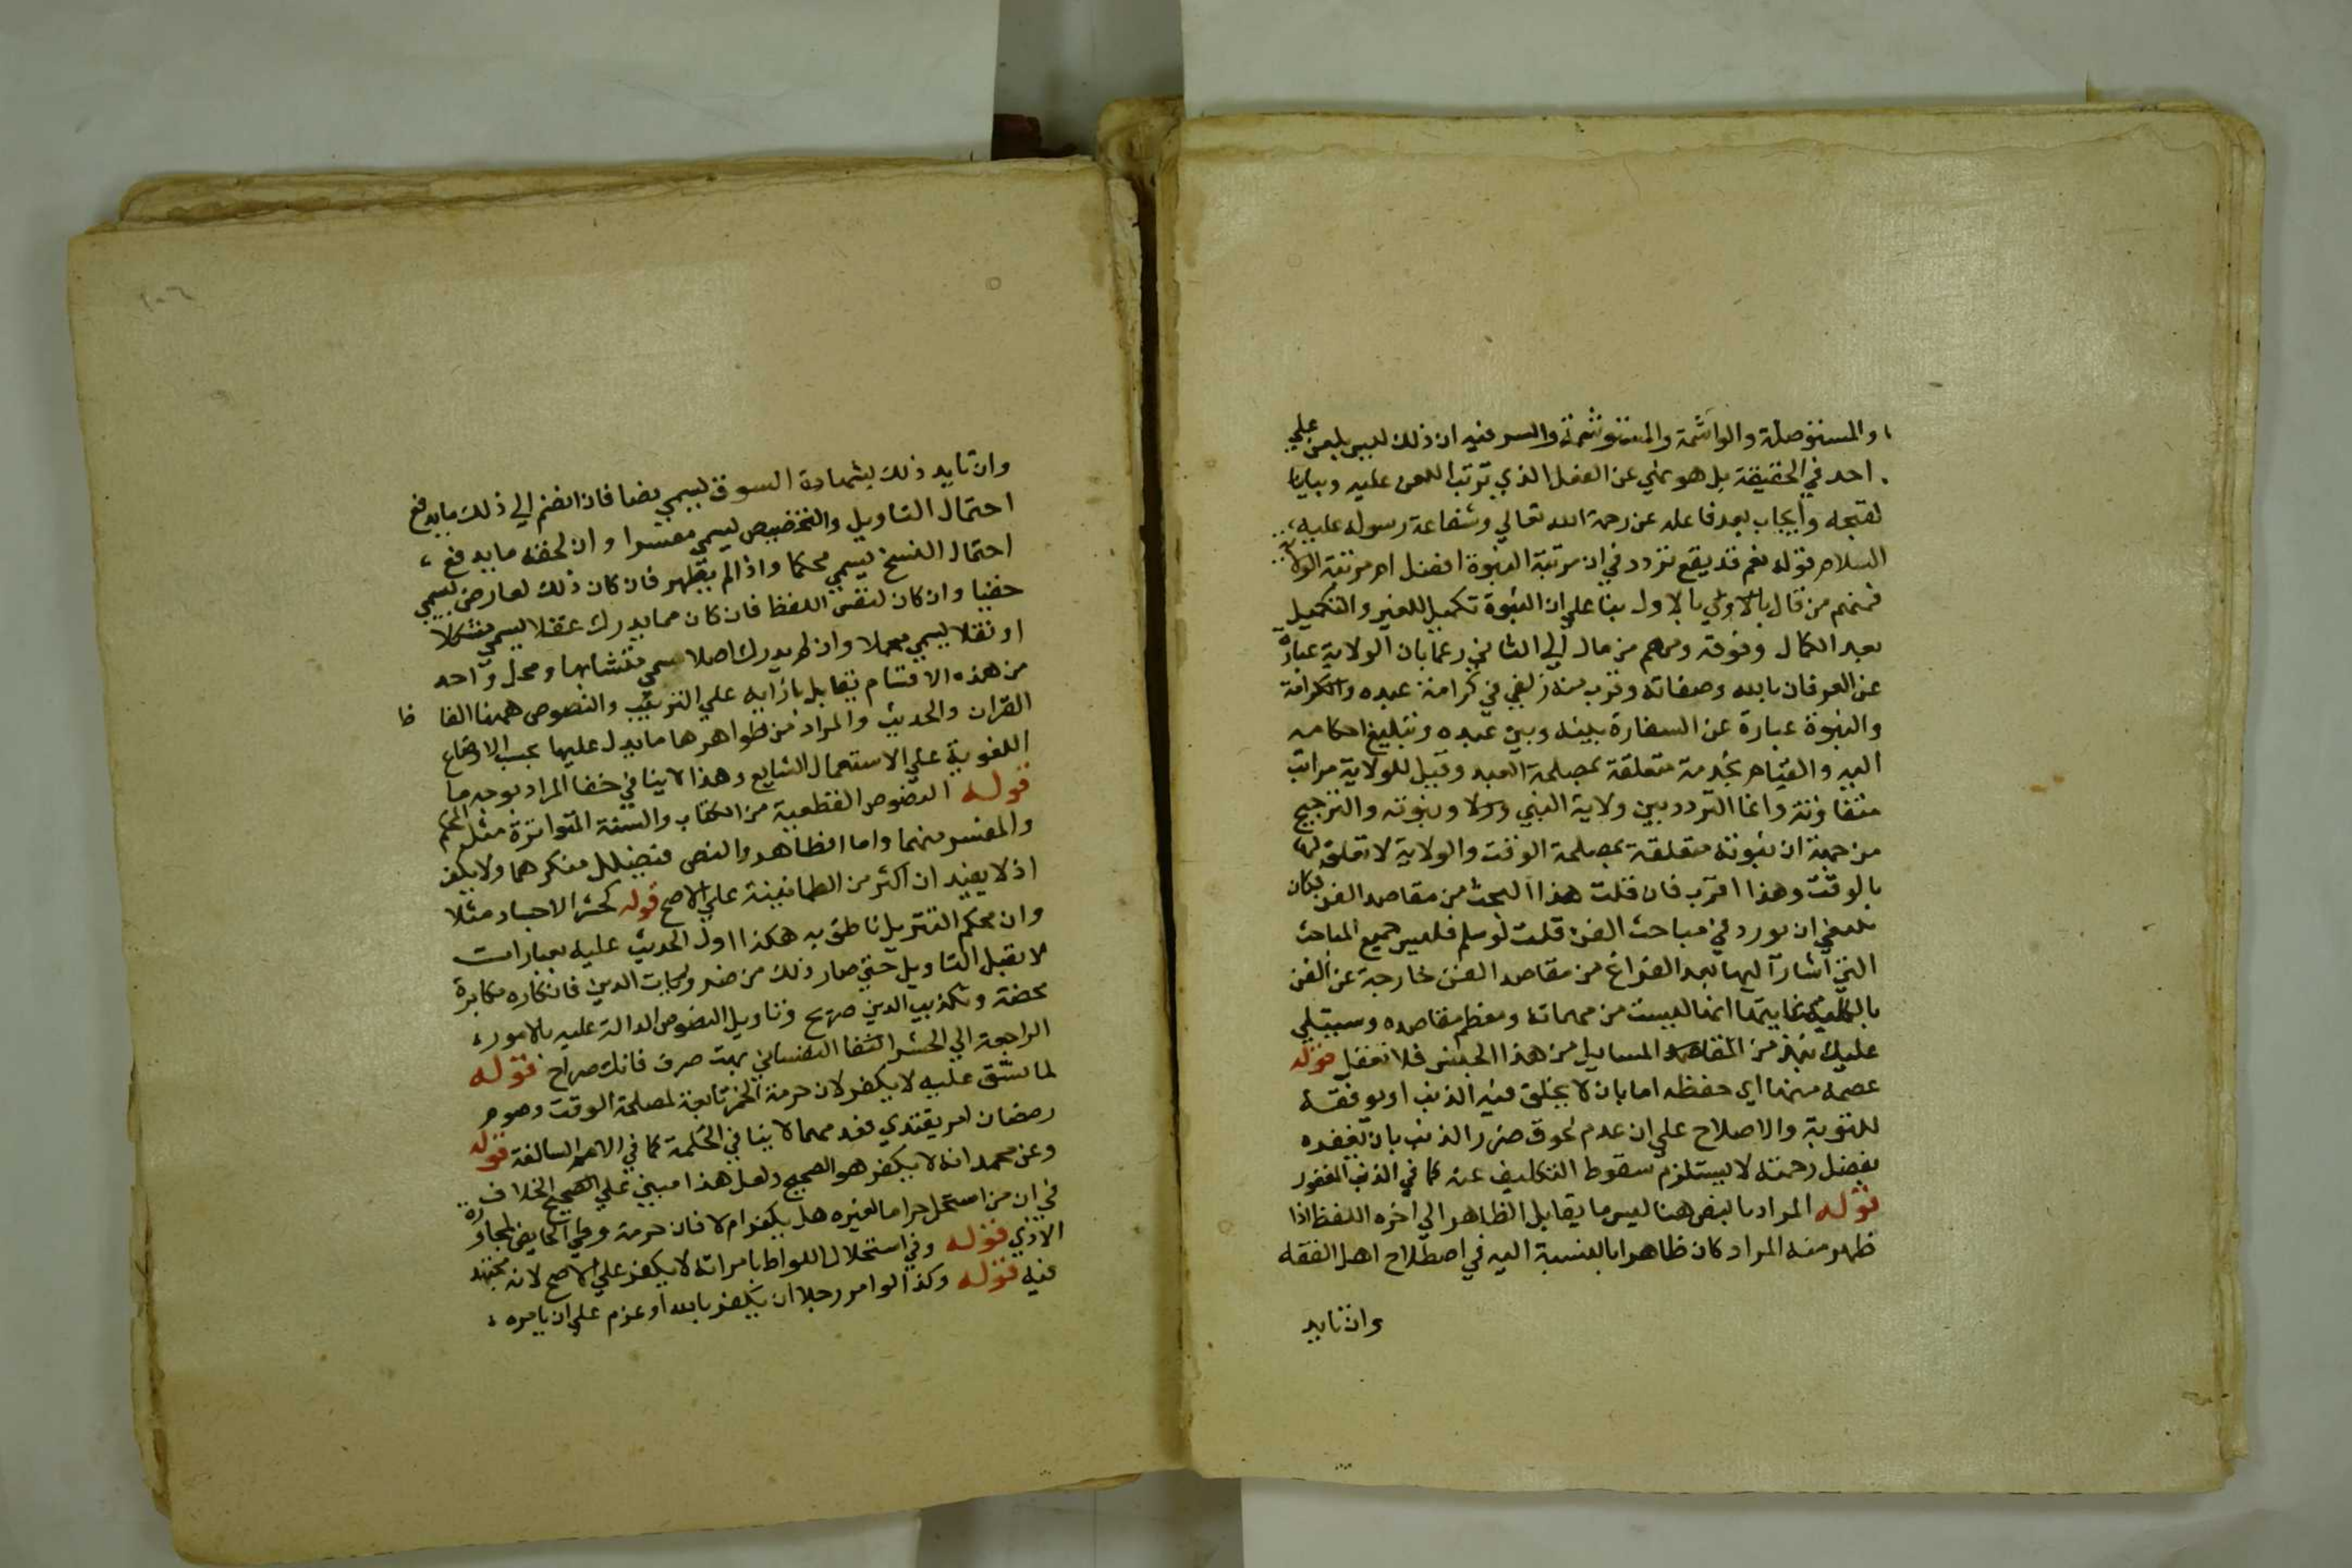 والمستوصلة والواشمة والمستوشمة والسر فيه ان ذلك ليس بلعن علي
احد في الحقيقة بل هو نهي عن الفعل الذي ترتب اللعن عليه وبيانا
لقبحه وايجاب بعد فاعله عن رحمة الله تعالي وشفاعة رسوله عليه
السلام قوله نعم قد يقع تردد في ان مرتبة النبوة افضل ام مرتبة الولاية
فمنهم من قال بالاول بنا علي ان النبوة تكميل للغير والتكميل
بعد الكمال وفوقه ومنهم من مال الي الثاني زعما بان الولاية عبارة
عن العرفان بالله وصفاته وقرب منه زلفي في كرامة عبده والكرامة
والنبوة عبارة عن السفارة بينه وبين عبده وتبليغ احكامه
اليه والقيام بخدمة متعلقة بمصلحة العبد وقيل للولاية مراتب
متفاوتة وانما التردد بين ولاية النبي ونبوته والترجيح
من جهة ان نبوته متعلقة بمصلحة الوقت والولاية لا تعلق لها
بالوقت وهذا اقرب فان قلت هذا البحث من مقاصد الفن فكان
ينبغي ان يورد في مباحث الفن قلت لو سلم فليس جميع المباحث
التي اشار اليها بعد الفراغ من مقاصد الفن خارجة عن الفن
بالكلية غايتها انها ليست من مهماته ومعظم مقاصده وسيتلي
عليك نبذ من المسايل من هذا الجنس فلا تغفل قوله
عصمه منها اي حفظه اما بان لا يخلق فيه الذنب او يوفقه
للتوبة والاصلاح علي ان عدم لحوق ضرر الذنب بان يغفره
بفضل رحمته لا يستلزم سقوط التكليف عنه كما في الذنب المغفور
قوله المراد بالنص هنا ليس ما يقابل الظاهر الي اخره اللفظ اذا
ظهر منه المراد كان ظاهرا بالنسبة اليه في اصطلاح اهل الفقه
وان تايد
١٠٦
وان تايد ذلك بشهادة السوق يسمي نصا فان انضم الي ذلك ما يدفع
احتمال التاويل والتخصيص يسمي مفسرا وان لحقه ما يدفع
احتمال النسخ يسمي محكما واذا لم يظهر فان كان ذلك لعارض يسمي
خفيا وان كان لنفس اللفظ فان كان مما يدرك عقلا يسمي مشكلا
او نقلا يسمي مجملا وان لم يدرك اصلا يسمي متشابها ومحل واحد
من هذه الاقسام تقابل بازايه علي الترتيب والنصوص ههنا الفاظ
القران والحديث والمراد من ظواهرها ما يدل عليها بحسب الاوضاع
اللغوية علي الاستعمال الشايع وهذا لا ينافي خفا المراد بوجه ما
قوله النصوص القطعية من الكتاب والسنة المتواترة مثل المحكم
والمفسر منهما واما الظاهر والنص فيضلل منكرهما ولا يكفر
اذ لا يفيد ان اكثر من الطمانينة علي الاصح قوله كحشر الاجساد مثلا
وان محكم التنزيل ناطق به هكذا اول الحديث عليه بعبارات
لا تقبل التاويل حتي صار ذلك من ضروريات الدين فانكاره مكابرة
محضة وتكذيب الدين صريح وتاويل النصوص الدالة عليه بالامور
الراجعة الي الحشر النفساني بهت صرف فانك صراح قوله
لما شق عليه لا يكفر لان حرمة الخمر تابعة لمصلحة الوقت وصوم
رمضان لم يقتدي فعدمهما لا ينافي الحكمة كما في الامم السالفة قوله
وعن محمد انه لا يكفر هو الصحيح ولعل هذا مبني علي الصحيح الخلاف
في ان من استحل حراما لغيره هل يكفر ام لا فان حرمة وطي الحايض لمجاورة
الاذي قوله وفي استحلال اللواط بامراته لا يكفر علي الاصح لانه مجتهد
فيه قوله وكذا لو امر رجلا ان يكفر بالله او عزم علي ان يامره